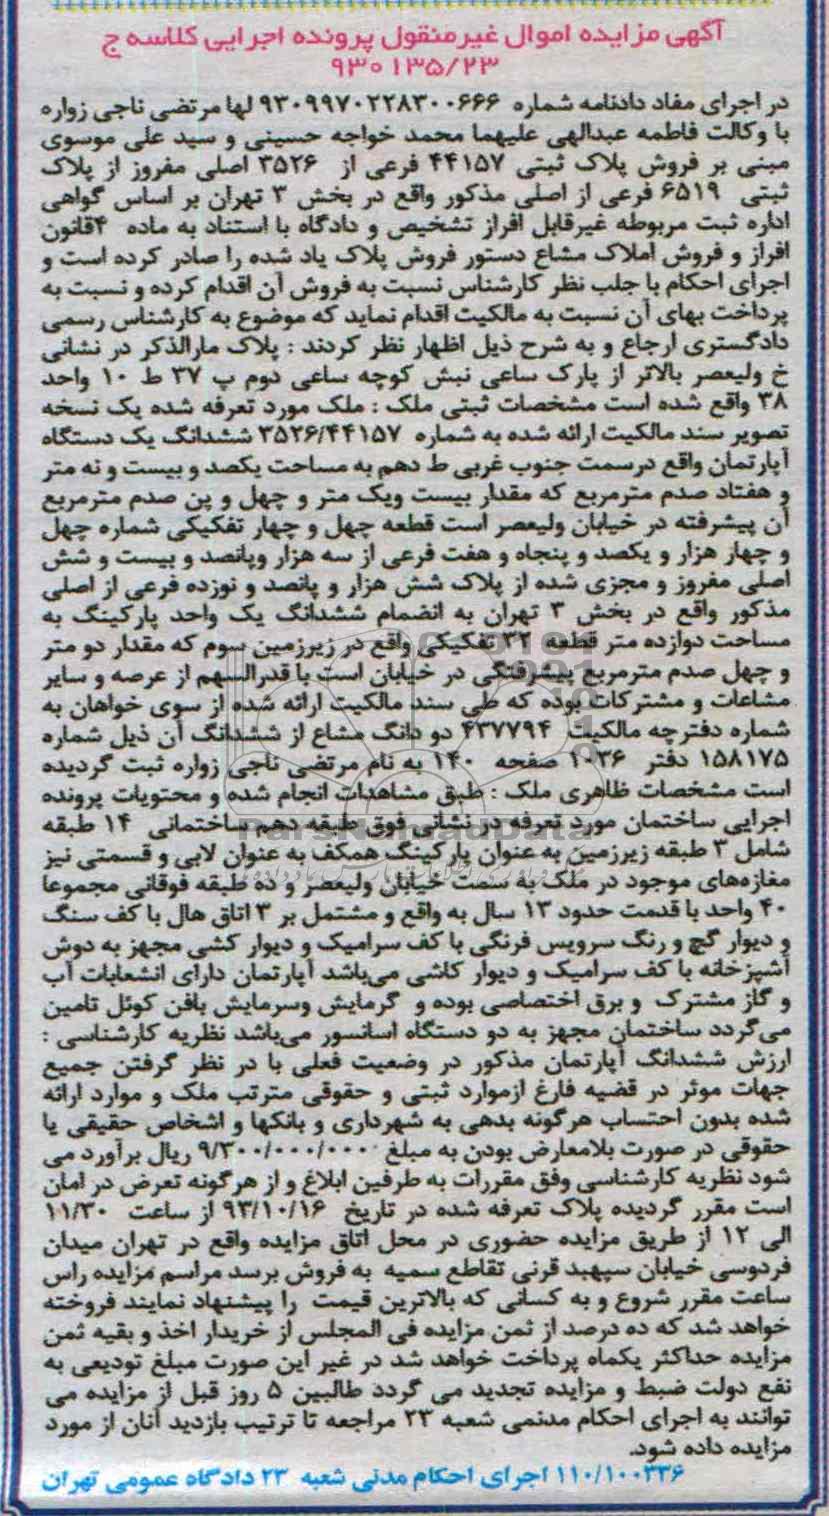 آگهی مزایده اموال غیرمنقول پرونده اجرایی کلاسه ج
۹۳۰۱۳۵/۲۳
در اجرای مفاد دادنامه شماره ۹۳۰۹۹۷۰۲۲۸۳۰۰۶۶۶ لها مرتضی ناجی زواره
با وکالت فاطمه عبدالهی علیهما محمد خواجه حسینی و سید علی موسوی
مبنی بر فروش پلاک ثبتی ۴۴۱۵۷ فرعی از ۳۵۲۶ اصلی مفروز از پلاک
ثبتی ۶۵۱۹ فرعی از اصلی مذکور واقع در بخش ۳ تهران بر اساس گواهی
اداره ثبت مربوطه غیرقابل افراز تشخیص و دادگاه با استناد به ماده ۴قانون
افراز و فروش املاک مشاع دستور فروش پلاک یاد شده را صادر کرده است و
اجرای احکام با جلب نظر کارشناس نسبت به فروش آن اقدام کرده و نسبت به
پرداخت بهای آن نسبت به مالکیت اقدام نماید که موضوع به کارشناس رسمی
دادگستری ارجاع و به شرح ذیل اظهار نظر کردند : پلاک مارالذکر در نشانی
خ ولیعصر بالاتر از پارک ساعی نبش کوچه ساعی دوم پ ۳۷ ط ۱۰ واحد
۳۸ واقع شده است مشخصات ثبتی ملک : ملک مورد تعرفه شده یک نسخه
تصویر سند مالکیت ارائه شده به شماره ۳۵۲۶/۴۴۱۵۷ ششدانگ یک دستگاه
آپارتمان واقع درسمت جنوب غربی ط دهم به مساحت یکصد و بیست و نه متر
و هفتاد صدم مترمربع که مقدار بیست ویک متر و چهل و پن صدم مترمربع
آن پیشرفته در خیابان ولیعصر است قطعه چهل و چهار تفکیکی شماره چهل
و چهار هزار و یکصد و پنجاه و هفت فرعی از سه هزار وپانصد و بیست و شش
اصلی مفروز و مجزی شده از پلاک شش هزار و پانصد و نوزده فرعی از اصلی
مذکور واقع در بخش ۳ تهران به انضمام ششدانگ یک واحد پارکینگ به
مساحت دوازده متر قطعه ۳۲ تفکیکی واقع در زیرزمین سوم که مقدار دو متر
و چهل صدم مترمربع پیشرفتگی در خیابان است با قدرالسهم از عرصه و سایر
مشاعات و مشترکات بوده که طی سند مالکیت ارائه شده از سوی خواهان به
شماره دفترچه مالکیت ۴۳۷۷۹۴ دو دانگ مشاع از ششدانگ آن ذیل شماره
۱۵۸۱۷۵ دفتر ۱۰۳۶ صفحه ۱۴۰ به نام مرتضی ناجی زواره ثبت گردیده
است مشخصات ظاهری ملک : طبق مشاهدات انجام شده و محتویات پرونده
اجرایی ساختمان مورد تعرفه در نشانی فوق طبقه دهم ساختمانی ۱۴ طبقه
شامل ۳ طبقه زیرزمین به عنوان پارکینگ همکف به عنوان لابی و قسمتی نیز
مغازه‌های موجود در ملک به سمت خیابان ولیعصر و ده طبقه فوقانی مجموعا
۴۰ واحد با قدمت حدود ۱۳ سال به واقع و مشتمل بر ۳ اتاق هال با کف سنگ
و دیوار گچ و رنگ سرویس فرنگی با کف سرامیک و دیوار کشی مجهز به دوش
آشپزخانه با کف سرامیک و دیوار کاشی می‌باشد آپارتمان دارای انشعابات آب
و گاز مشترک و برق اختصاصی بوده و گرمایش وسرمایش بافن کوئل تامین
می‌گردد ساختمان مجهز به دو دستگاه آسانسور می‌باشد نظریه کارشناسی :
ارزش ششدانگ آپارتمان مذکور در وضعیت فعلی با در نظر گرفتن جمیع
جهات موثر در قضیه فارغ ازموارد ثبتی و حقوقی مترتب ملک و موارد ارائه
شده بدون احتساب هرگونه بدهی به شهرداری و بانکها و اشخاص حقیقی یا
حقوقی در صورت بلامعارض بودن به مبلغ ۹/۳۰۰/۰۰۰/۰۰۰ ریال برآورد می
شود نظریه کارشناسی وفق مقررات به طرفین ابلاغ و از هرگونه تعرض در امان
است مقرر گردیده پلاک تعرفه شده در تاریخ ۹۳/۱۰/۱۶ از ساعت ۱۱/۳۰
الی ۱۲ از طریق مزایده حضوری در محل اتاق مزایده واقع در تهران میدان
فردوسی خیابان سپهبد قرنی تقاطع سمیه به فروش برسد مراسم مزایده راس
ساعت مقرر شروع و به کسانی که بالاترین قیمت را پیشنهاد نمایند فروخته
خواهد شد که ده درصد از ثمن مزایده فی المجلس از خریدار اخذ و بقیه ثمن
مزایده حداکثر یکماه پرداخت خواهد شد در غیر این صورت مبلغ تودیعی به
نفع دولت ضبط و مزایده تجدید می گردد طالبین ۵ روز قبل از مزایده می
توانند به اجرای احکام مدنمی شعبه ۲۳ مراجعه تا ترتیب بازدید آنان از مورد
مزایده داده شود.
۱۱۰/۱۰۰۳۳۶ اجرای احکام مدنی شعبه ۲۳ دادگاه عمومی تهران
ParsNamadData